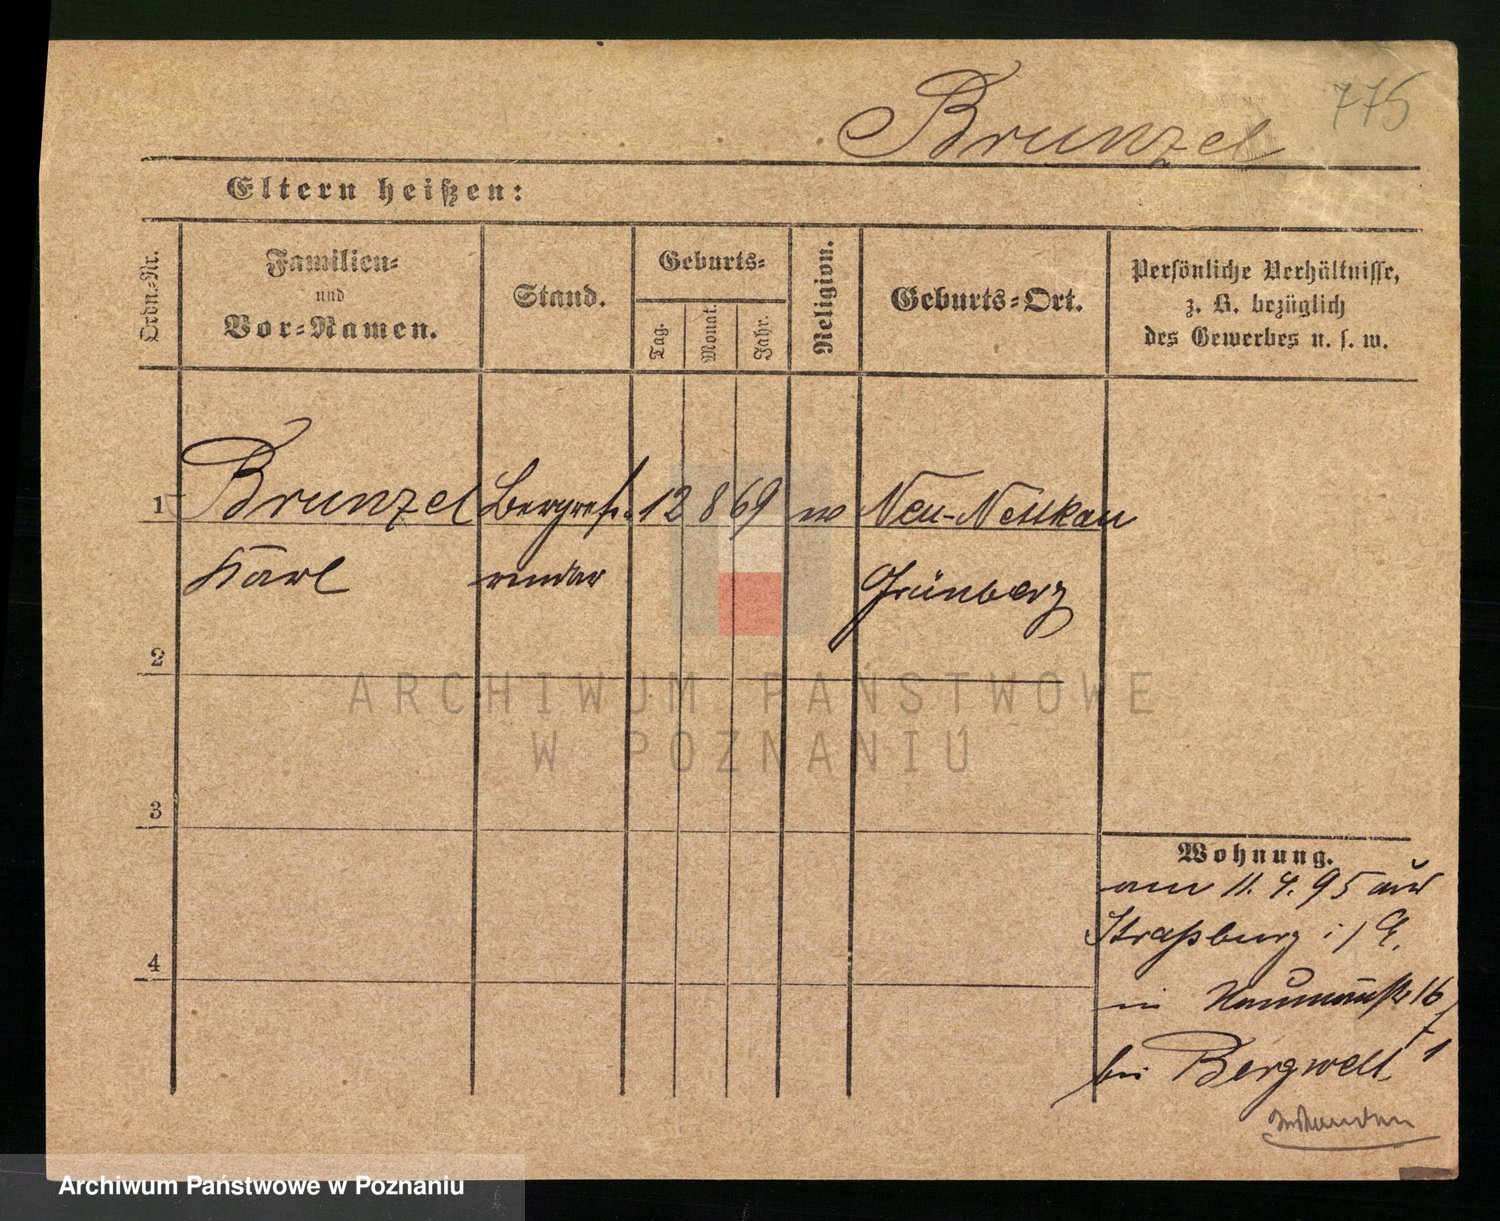 775
Brunzel
Eltern heißen:
Ordn.-Nr.
Familien-
und
Vor-Namen.
Stand.
Geburts-
Tag.
Monat.
Jahr.
Religion.
Geburts-Ort.
Persönliche Verhältnisse,
z. B. bezüglich
des Gewerbes u. s. w.
1 Brunzel Bergrefe- 12 8 69 Neu-Nettkau
Karl rendar Grünberg
2
3
4
Wohnung.
am 11. 4. 95 aus
Straßburg i/E.
in 16/1
bei Bergwelt
ARCHIWUM PAŃSTWOWE
W POZNANIU
Archiwum Państwowe w Poznaniu